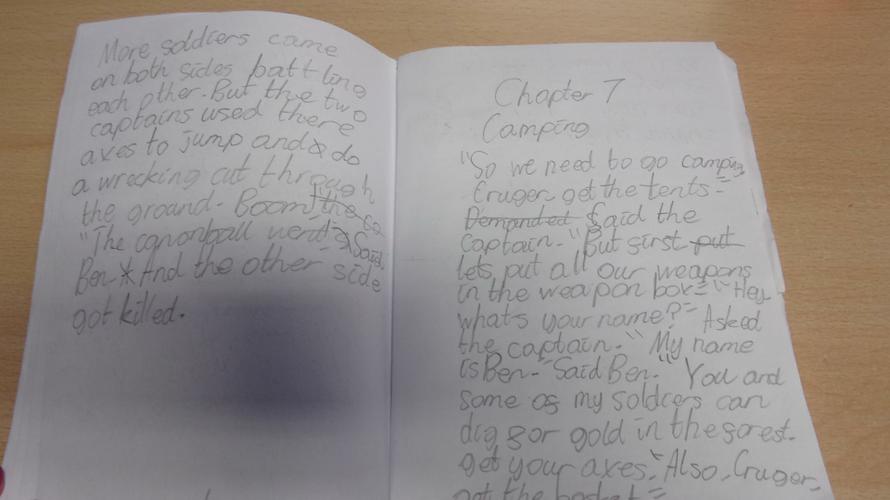 More soldiers came
on both sides battling
each other. But the two
captains used there
axes to jump and do
a wrecking cut through
the ground. Boom! the ca
"The canonball went" Said
Ben * And the other side
got killed.
Chapter 7
Camping
"So we need to go camping
Cruger get the tents"
Demanded Said the
captain. "But first put
lets put all our weapons
in the weapon box" "Hey
whats your name?" Asked
the captain. "My name
is Ben." Said Ben. "You and
some of my soldiers can
dig for gold in the forest.
get your axes." Also, Cruger,
got the